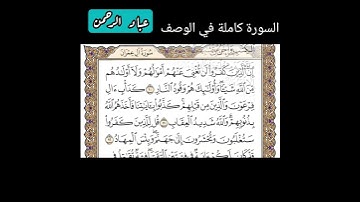 السورة كاملة في الوصف
عباد الرحمن
سورة آل عمران
إن الذين كفروا لن تغني عنهم أموالهم ولا أولادهم
من الله شيئا وأولئك هم وقود النار ١٠ كدأب ءال
فرعون والذين من قبلهم كذبوا بآياتنا فأخذهم الله
بذنوبهم والله شديد العقاب ١١ قل للذين كفروا
ستغلبون وتحشرون إلى جهنم وبئس المهاد ١٢